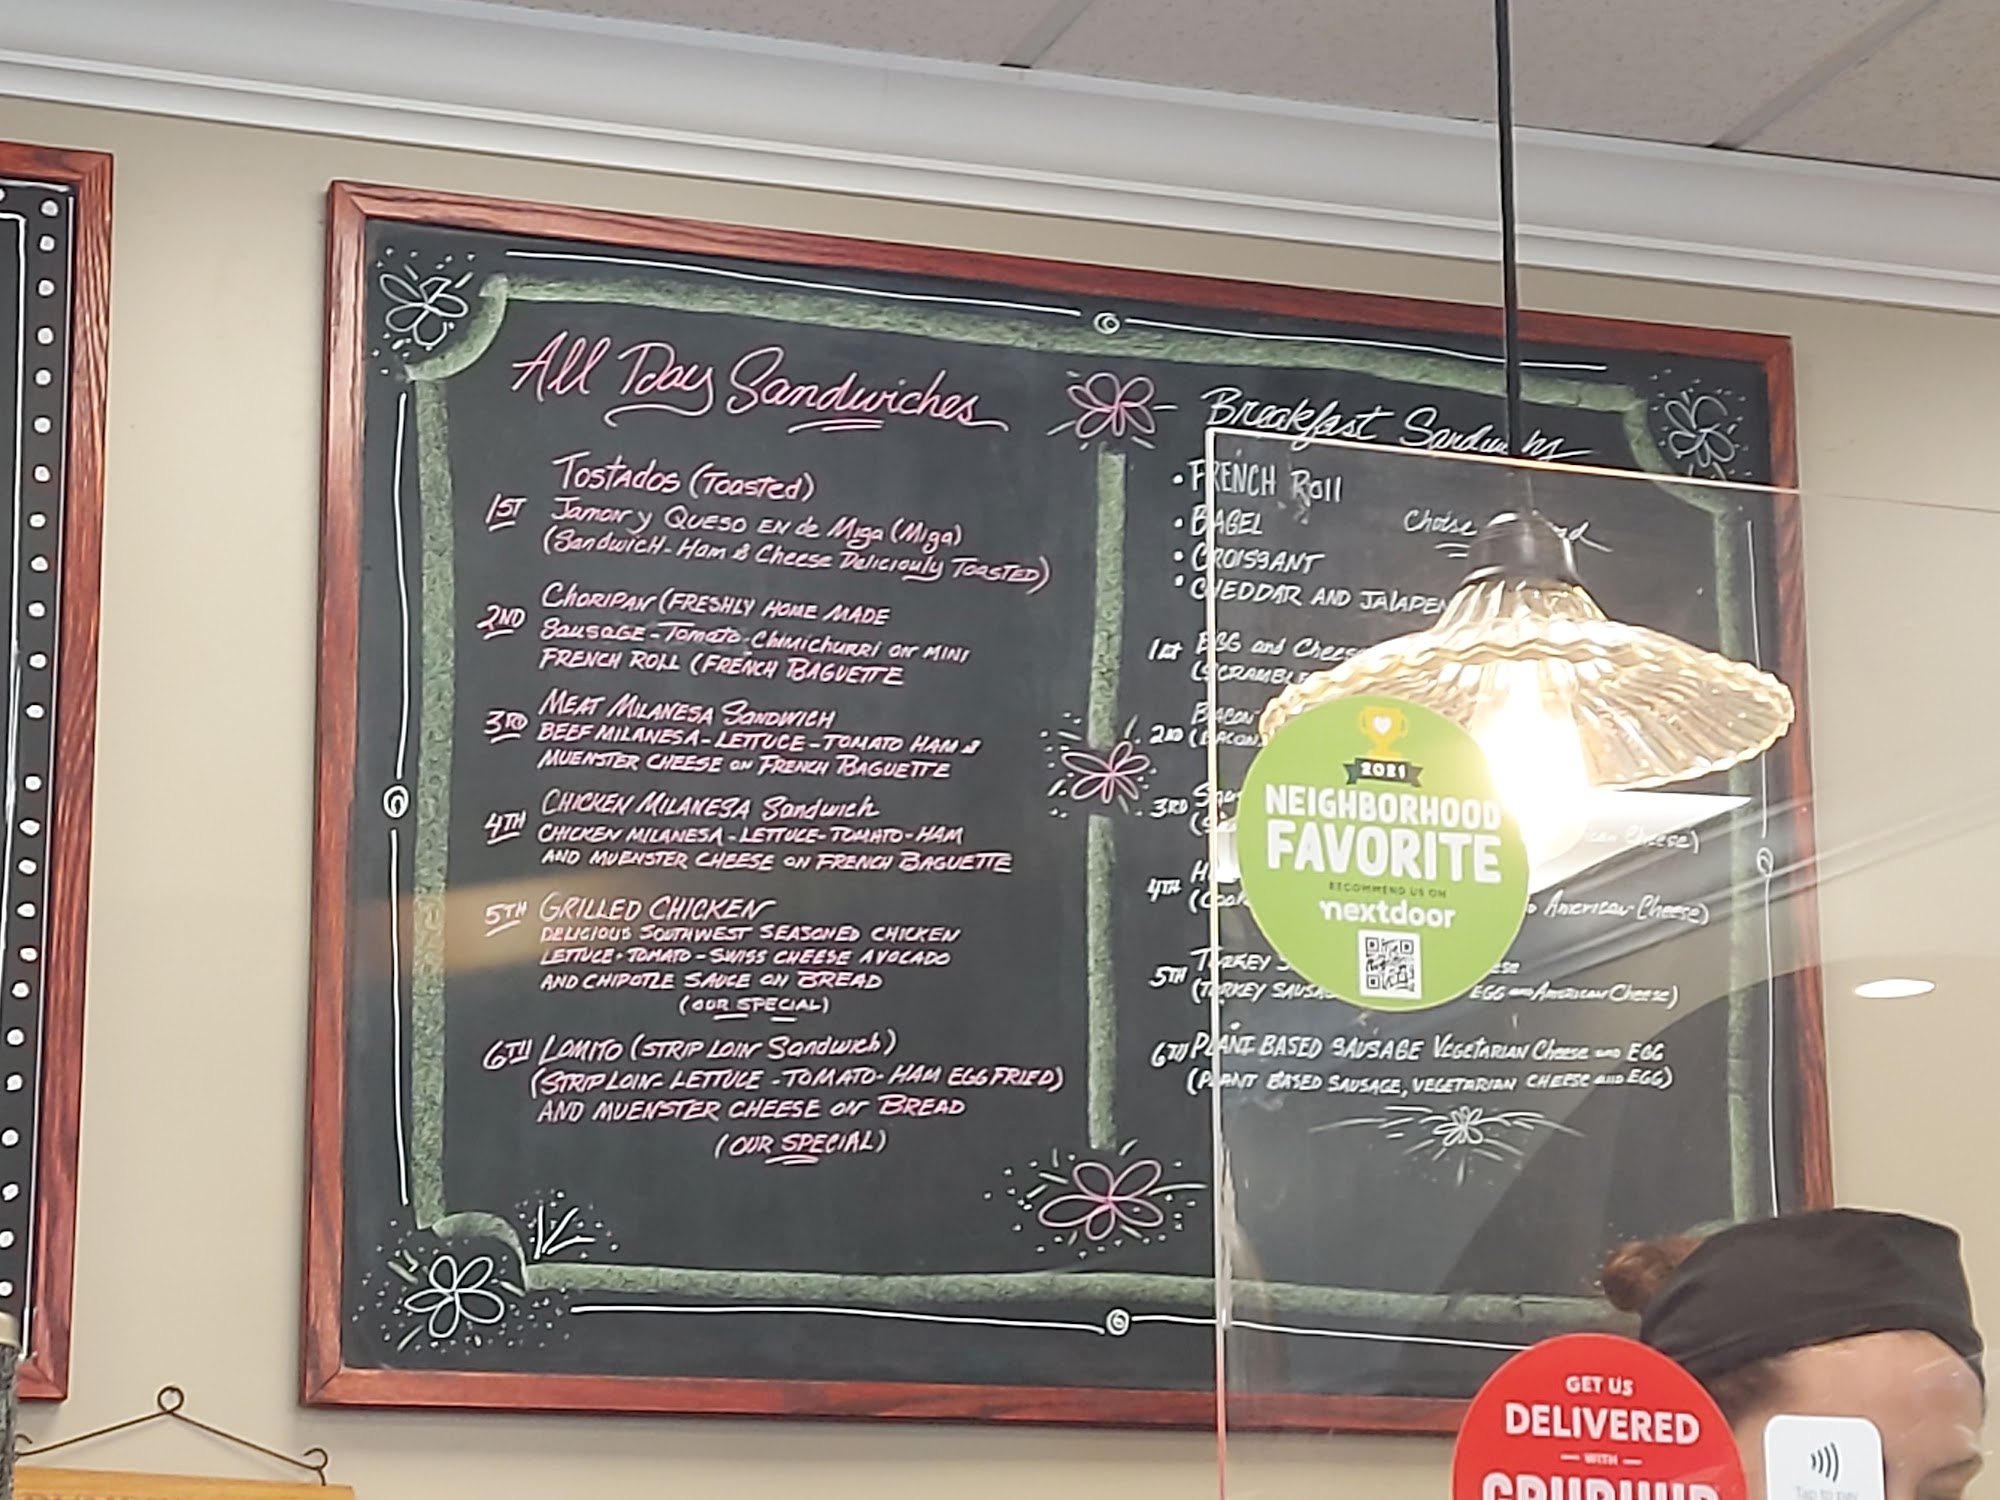 All Day Sandwiches
Tostados (Toasted)
1ST Jamon y Queso en de Miga (Miga)
(Sandwich-Ham & Cheese Deliciouly Toasted)
2ND Choripan (Freshly Home Made
Sausage-Tomato-Chimichurri on mini
French Roll (French Baguette
3RD Meat Milanesa Sandwich
Beef Milanesa-Lettuce-Tomato Ham &
Muenster Cheese on French Baguette
4TH Chicken Milanesa Sandwich
Chicken Milanesa-Lettuce-Tomato-Ham
and Muenster Cheese on French Baguette
5TH Grilled Chicken
Delicious Southwest Seasoned Chicken
Lettuce-Tomato-Swiss Cheese Avocado
and Chipotle Sauce on Bread
(Our Special)
6TH Lomito (Strip Loin Sandwich)
(Strip Loin-Lettuce-Tomato-Ham Egg Fried)
and Muenster Cheese on Bread
(Our Special)
Breakfast
• French Roll
• Bagel
• Croissant
• Cheddar and
Choise
1st Egg and Cheese
2ND Bacon
(Bacon
3RD
Cheese)
4TH
American Cheese)
5TH Turkey
(Turkey Egg and American Cheese)
6TH Plant Based Sausage Vegetarian Cheese and Egg
(Plant Based Sausage, Vegetarian Cheese and Egg)
2021
NEIGHBORHOOD
FAVORITE
RECOMMEND US ON
nextdoor
GET US
DELIVERED
WITH
GRUBHUB
Tap to pay